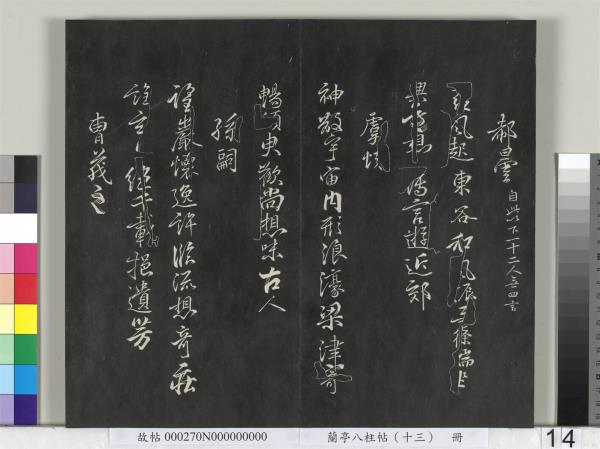 郗曇 自此下一十二人無四言
風起東谷和風振條端坐
興遠想言遊近郊
虞
神散宇宙内形浪濠梁津寄
暢須臾歡尚想味古人
孫嗣
望巖懷逸許臨流想奇莊
誰言絶千載挹遺芳
曹茂之
故帖 000270N000000000 蘭亭八柱帖(十三) 冊
14